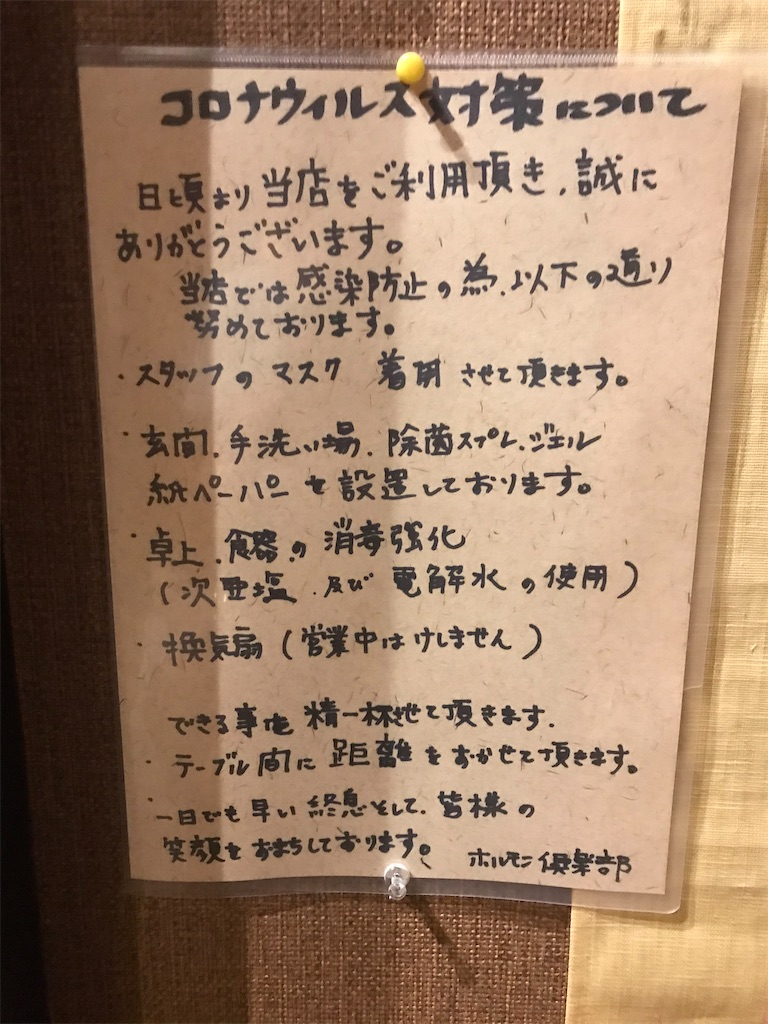 コロナウィルス対策について
日頃より当店をご利用頂き、誠に
ありがとうございます。
当店では感染防止の為、以下の通り
努めております。
・スタッフのマスク 着用させて頂きます。
・玄関、手洗い場、除菌スプレ、ジェル
紙ペーパーを設置しております。
・卓上、食器の消毒強化
(次亜塩、及び電解水の使用)
・換気扇(営業中はけしません)
できる事を精一杯させて頂きます。
・テーブル間に距離をおかせて頂きます。
・一日でも早い終息をして、皆様の
笑顔をおまちしております。
ホルモン倶楽部